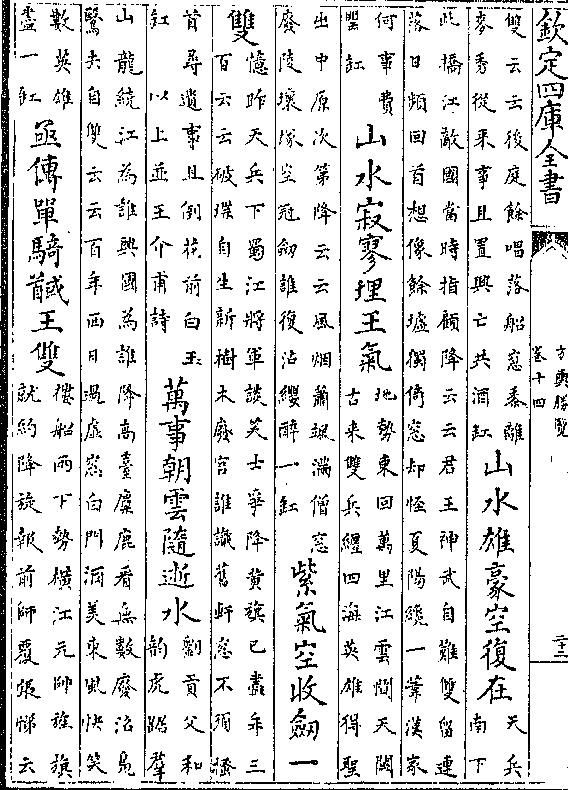 欽定四庫全書
方輿勝覽
卷十四
二十二
雙云云後庭餘唱落船窓黍離
麥秀從來事且置興亡共酒缸
山水雄豪空復在
天兵
南下
此橋江敵國當時指顧降云云君王神武自難雙留連
落日頻回首想像餘墟獨倚窓却怪夏陽纔一葦漢家
何事費
甖缸
山水寂寥埋王氣
地勢東回萬里江雲間天闕
古来雙兵纒四海英雄得聖
出中原次第降云云風烟蕭颯滿僧窓
廢陵壊冢空冠劒誰復沾纓醉一缸
紫氣空收劒一
雙
憶昨天兵下蜀江將軍談笑士爭降黄旗已盡年三
百云云破堞自生新樹木廢宫誰識舊軒窓不須搔
首尋遺事且倒花前白玉
缸 以上並王介甫詩
萬事朝雲隨逝水
劉貢父和
韵虎踞羣
山龍繞江為誰興國為誰降高臺麋鹿看無數廢沼鳬
鷖去自雙云云百年西日過虛窓白門酒美東風快笑
數英雄
盡一缸
亟傳單騎馘王雙
樓船西下勢横江元帥旌旗
就約降旋報前師覆張悌云